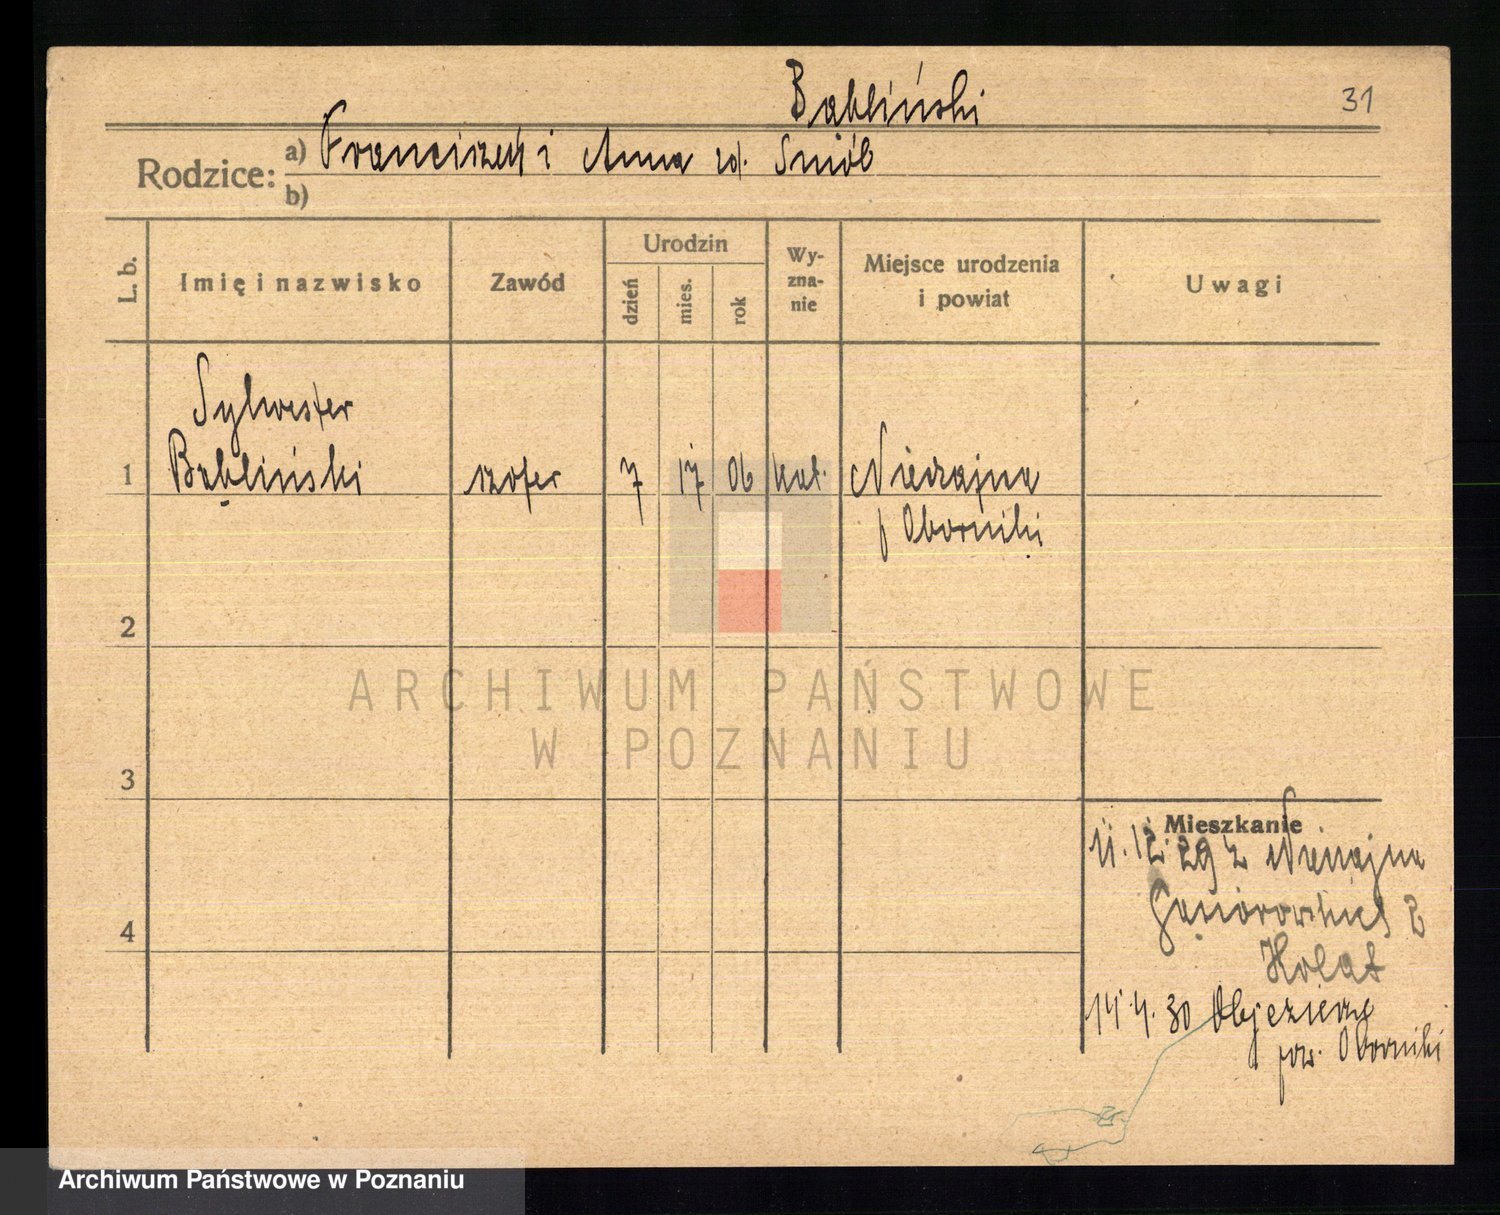 Bąbliński
31
Rodzice:
a) Franciszek i Anna zd.
b)
L. b.
Imię i nazwisko
Zawód
Urodzin
dzień
mies.
rok
Wy-
zna-
nie
Miejsce urodzenia
i powiat
Uwagi
Sylwester
1 Bąbliński szofer 7 06 kat.
p Oborniki
2
3
4
Mieszkanie
11. 12. 29 z
14. 4. 30 Objezierze
pow. Oborniki
ARCHIWUM PAŃSTWOWE
W POZNANIU
Archiwum Państwowe w Poznaniu